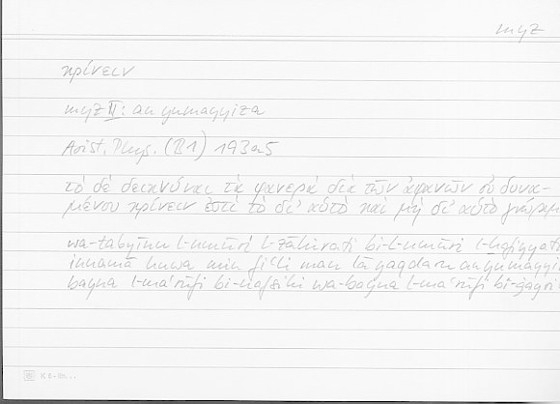 myz
κρίνειν
myz II: an yumayyiza
Arist. Phys. (B1) 193a5
τὸ δὲ δεικνύναι τὰ φανερὰ διὰ τῶν ἀφανῶν οὐ δυνα-
μένου κρίνειν ἐστὶ τὸ δι' αὑτὸ καὶ μὴ δι' αὑτὸ
wa-tabyīnu l-umūri l-ẓāhirati bi-l-umūri l-ḫafiyyati
innamā huwa min fiʿli man lā yaqdaru an yumayyi
bayna l-maʿrūfi bi-nafsihi wa-bayna l-maʿrūfi bi-ġayri